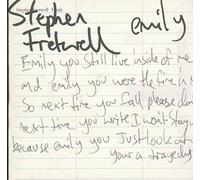 Stephen Fretwell Emily
Stephen emily
Fretwell
Emily you still live inside of me
and emily you were the fire in
So next time you fall please don
next time you write I wont stay
because emily you just look out
your a tragedy